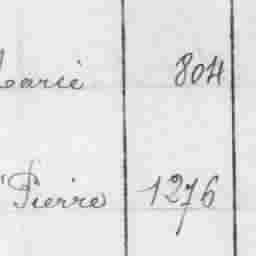 Marie 804
Pierre 1276